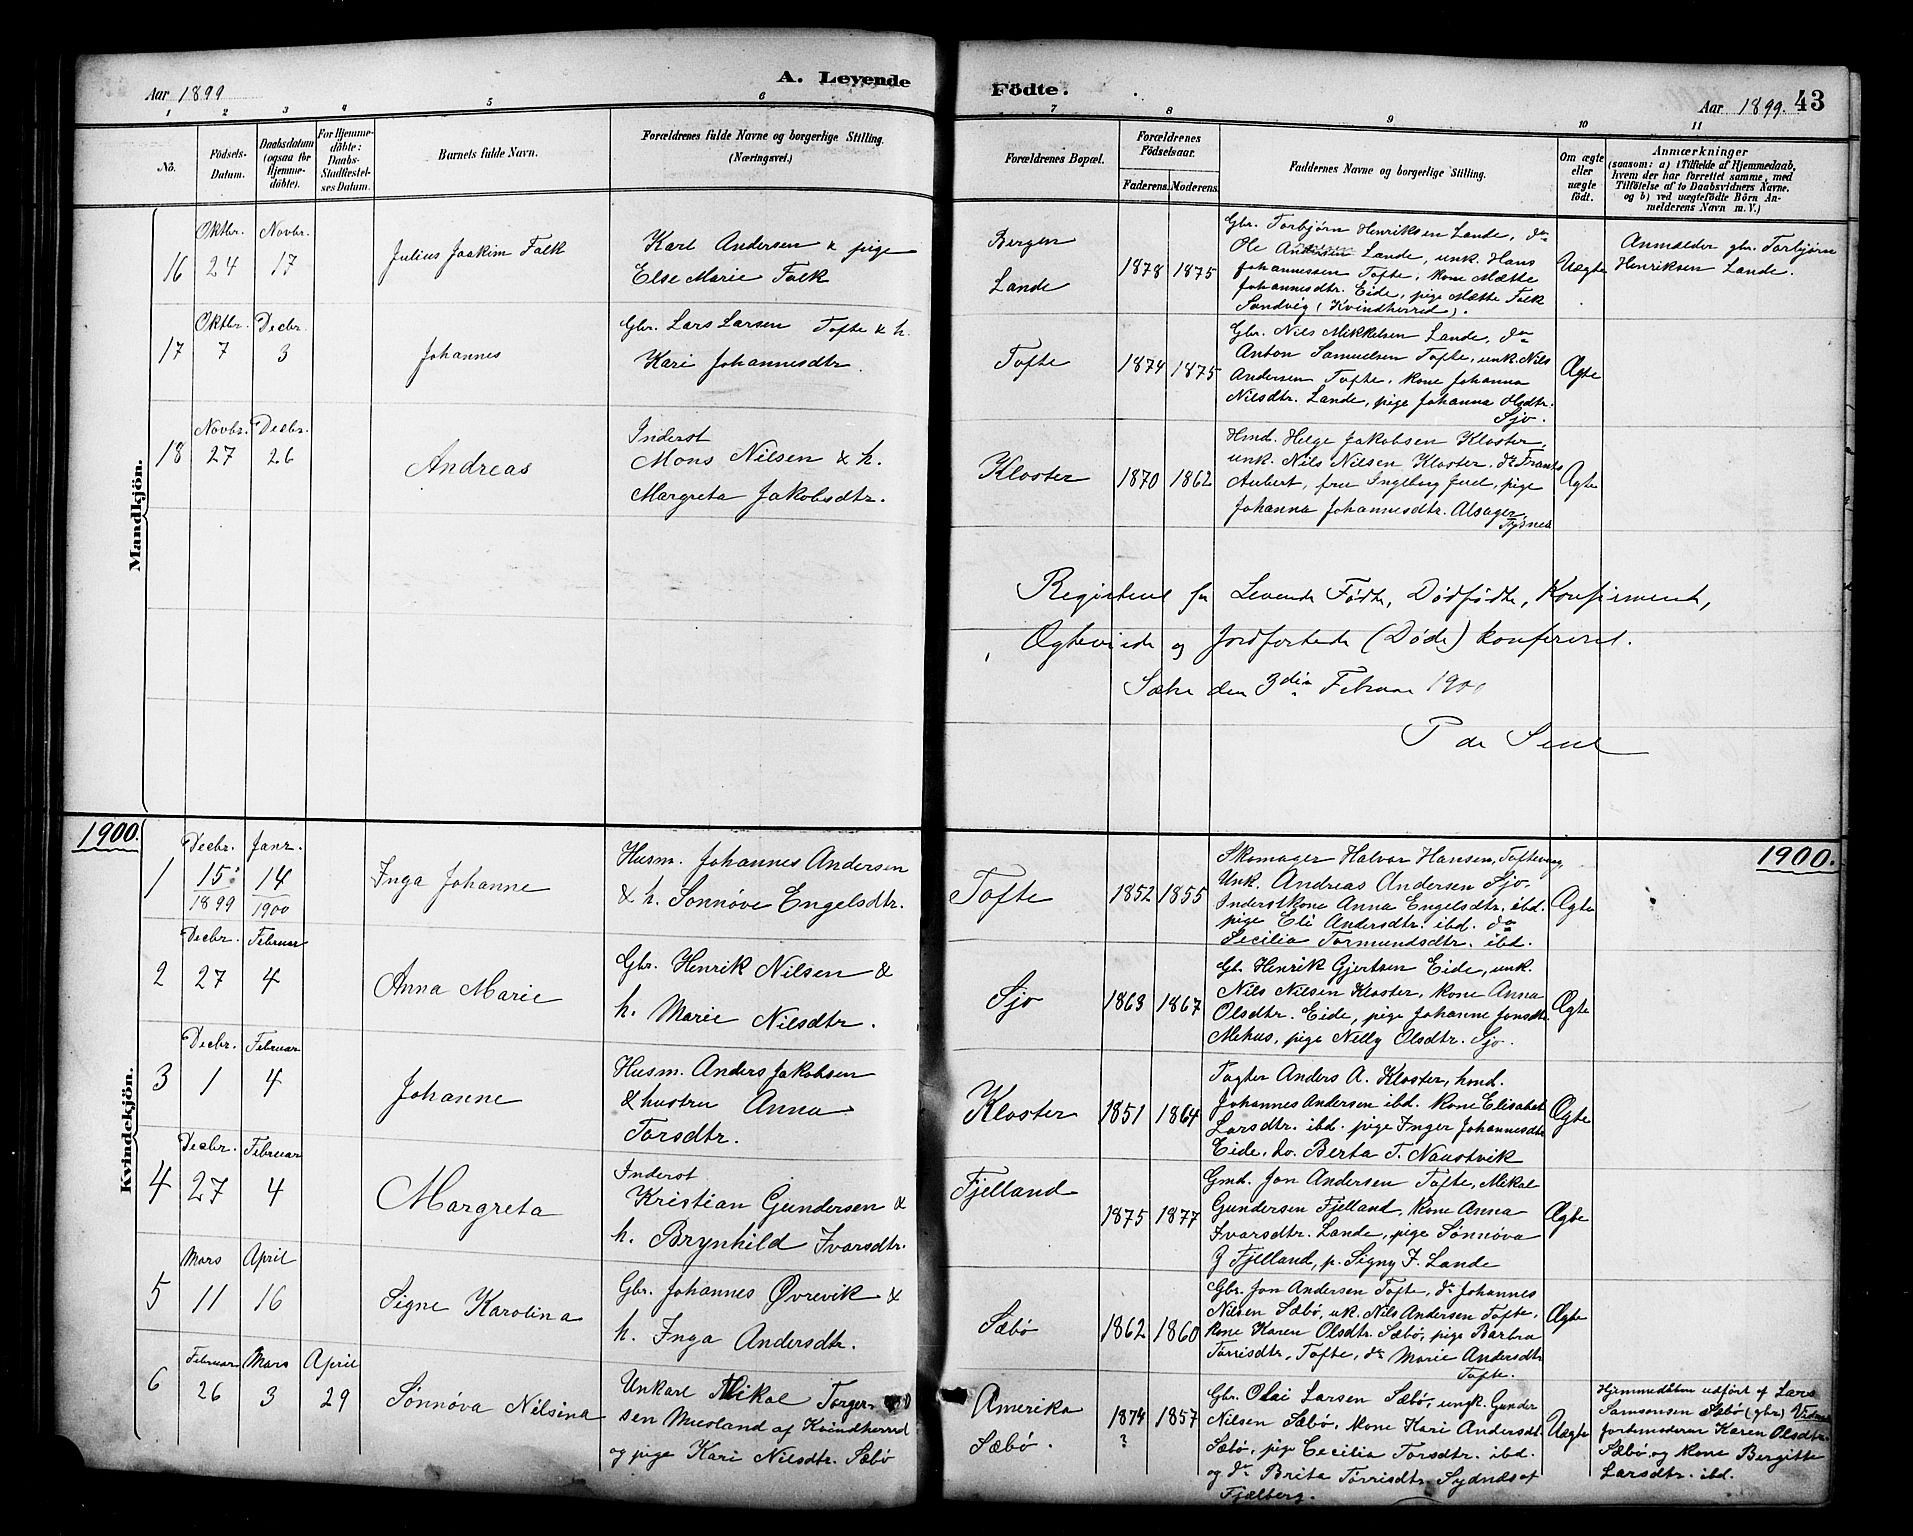 A. Levende
Födte.
43
Aar 1899
Aar 1899.
1 2 3 4 5 6 7 8 9 10 11
No.
Födsels-Datum.
Daabsdatum (ogsaa för Hjemme-döbte).
For Hjemme-döbte: Daabs-Stadfæstel-ses Datum.
Barnets fulde Navn.
Forældrenes fulde Navne og borgerlige Stilling.
(Næringsvei.)
Forældrenes Bopæl.
Forældrenes Födselsaar.
Faderens. Moderens.
Faddernes Navne og borgerlige Stilling.
Om ægte eller uægte født.
Anmærkninger
(saasom: a) i Tilfælde af Hjemmedaab,
hvem der har forrettet samme, med
Tilföielse af to Daabsvidners Navne.
og b) ved uægtefödte Börn An-
melderens Navn m. V.)
Mandkjön.
16
Oktbr. 24
Novbr. 17
Julius Joakim Falk
Karl Andersen & pige
Else Marie Falk
Bergen
Lande
1878 1875
Gbr. Torbjørn Henriksen Lande, do
Ole Andersen Lande, unk. Hans
Johannessen Tofte, kone Mætte
Johannesdtr. Eide, pige Mætte Falk
Sandvig (Kvindherred).
Uægte
Anmelder gbr. Torbjørn
Henriksen Lande.
17
Oktbr. 7
Decbr. 3
Johannes
Gbr. Lars Larsen Tofte & h.
Kari Johannesdtr.
Tofte
1874 1875
Gbr. Nils Mikkelsen Lande, do
Anton Samuelsen Tofte, unk. Nils
Andersen Tofte, kone Johanna
Nilsdtr. Lande, pige Johanna Olsdtr.
Sjo.
Ægte
18
Novbr. 27
Decbr. 26
Andreas
Inderst
Mons Nilsen & h.
Margreta Jakobsdtr.
Kloster
1870 1862
Hmd. Helge Jakobsen Kloster,
unk. Nils Nilsen Kloster, do Frants
Aubert, fru Ingeborg Juel, pige
Johanna Johannesdtr. Alsager,
Tysnes
Ægte
Levende Fødte, Dødfødte,
Ægteviede og Jordfæstede (Døde) konfereret.
den 3die Februar 1900
1900.
1900.
Kvindekjön.
1
Decbr. 15 1899
Janr. 14 1900
Inga Johanne
Husm. Johannes Andersen
& h. Sønnøve Engelsdtr.
Tofte
1852 1855
Skomager Halvor Hansen, Toftevaag
Unk. Andreas Andersen Sjo.
Inderstkone Anna Engelsdtr. ibd.
pige Eli Andersdtr. ibd. do
Cecilia Tormundsdtr. ibd.
Ægte
2
Decbr. 27
Februar 4
Anna Marie
Gbr. Henrik Nilsen &
h. Marie Nilsdtr.
Sjo
1863 1867
Gb. Henrik Gjertsen Eide, unk.
Nils Nilsen Kloster, kone Anna
Olsdtr. Eide, pige Johanne Jonsdtr.
Mehus, pige Nelly Olsdtr. Sjo.
Ægte
3
Decbr. 1
Februar 4
Johanne
Husm. Anders Jakobsen
& hustru Anna
Torsdtr.
Kloster
1851 1864
Anders A. Kloster, hmd.
Johannes Andersen ibd. kone Elisabet
Larsdtr. ibd. pige Inger Johannesdtr
Eide, do. Berta T. Naustvik
Ægte
4
Decbr. 27
Februar 4
Margreta
Inderst
Kristian Gundersen &
h. Brynhild Ivarsdtr.
Fjelland
1875 1877
Gmd. Jon Andersen Tofte, Mikal
Gundersen Fjelland, kone Anna
Ivarsdtr. Lande, pige Sønnøva
G Fjelland, p. Signy I. Lande
Ægte
5
Mars 11
April 16
Signe Karolina
Gbr. Johannes Øvrevik &
h. Inga Andersdtr.
Sæbø
1862 1860
Gbr. Jon Andersen Tofte, do Johannes
Nilsen Sæbø, uk. Nils Andersen Tofte,
kone Karen Olsdtr. Sæbø, pige Barbra
Torrisdtr, Tofte, do Marie Andersdtr
Tofte.
Ægte
6
Februar 26
Mars 3
April 29
Sønnøva Nilsina
Unkarl Mikal Torger-
sen Musland af Kvindherred
og pige Kari Nilsdtr. Sæbø
Amerika
Sæbø.
1874 ? 1857
Gbr. Olai Larsen Sæbø, ungk. Gunder
Nilsen Sæbø, kone Kari Andersdt.
Sæbø, pige Cecilia Torsdtr. ibd.
og do Brita Torrisdtr. Sydnes af
Fjælberg.
Uægte
Hjemmedåben udført af Lars
Samsonsen Sæbø (gbr) Vidner
jordemoderen Karen Olsdtr.
Sæbø og kone Bergitte
Larsdtr. ibd.